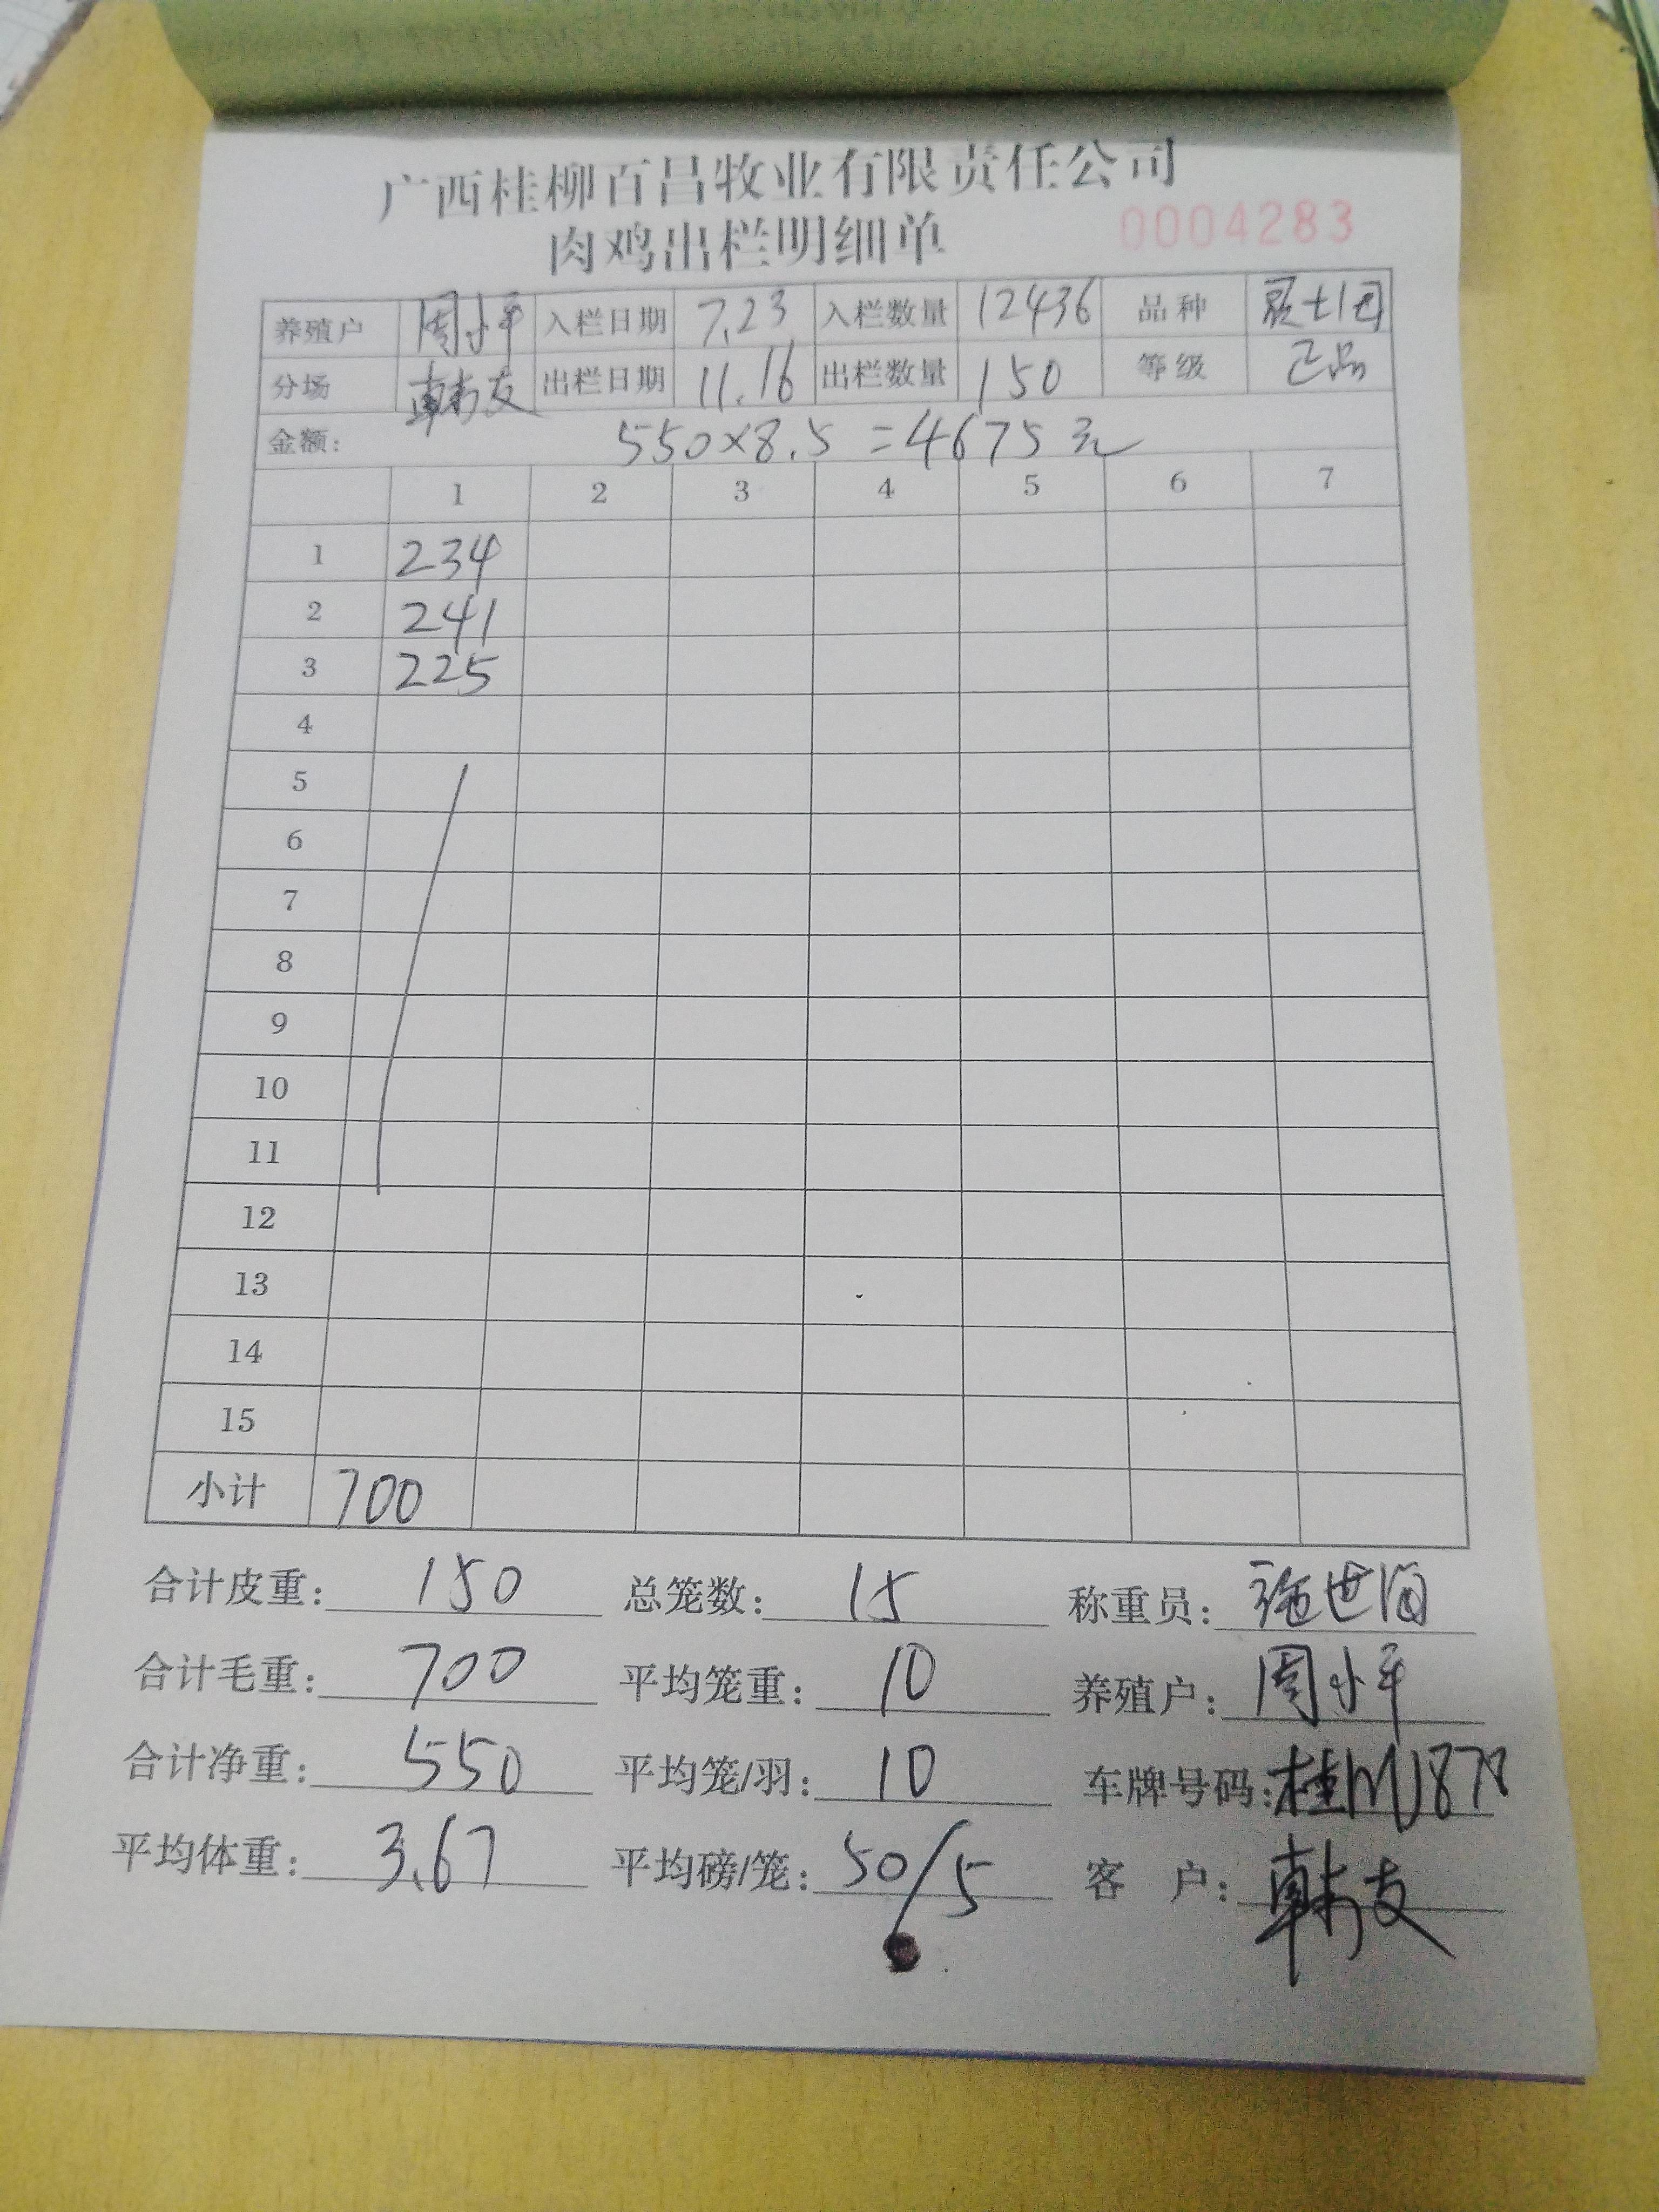 广西桂柳百昌牧业有限责任公司
肉鸡出栏明细单 0004283
养殖户 周小平 入栏日期 7.23 入栏数量 12436 品种
分场 韩友 出栏日期 11.16 出栏数量 150 等级 正品
金额: 550×8.5=4675元
1 2 3 4 5 6 7
1 234
2 241
3 225
4
5
6
7
8
9
10
11
12
13
14
15
小计 700
合计皮重: 150 总笼数: 15 称重员:
合计毛重: 700 平均笼重: 10 养殖户: 周小平
合计净重: 550 平均笼/羽: 10 车牌号码:
平均体重: 3.67 平均磅/笼: 50/5 客 户: 韩友